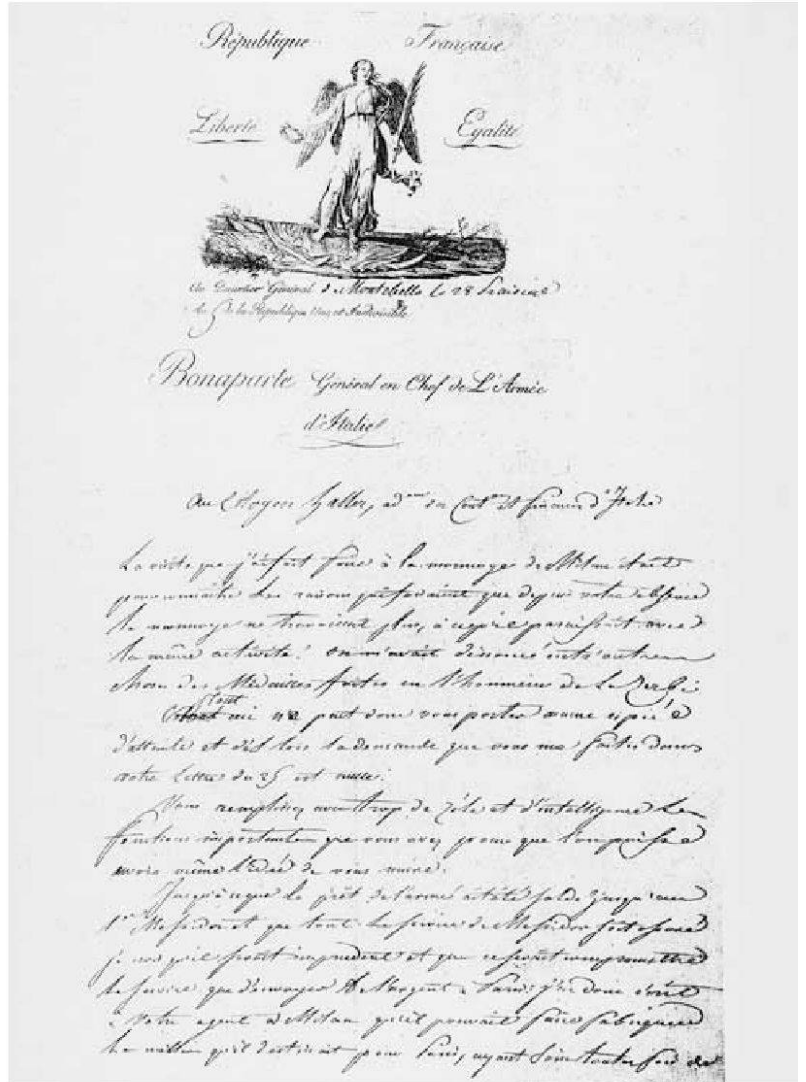 République Française
Liberté Egalité
Au Quartier Général de Montebello le 28 Prairial
de la République Une et Indivisible
Bonaparte Général en Chef de L'Armée
d'Italie
Au Citoyen haller, ad des Cont et finances d'Italie
La visite que j'ai fait faire à la monnoye de Milan était
pour connaître les raisons qui faisaient que depuis votre absence
la monnoye ne travaillait plus, à ce qu'il paraissait avec
la même activité. on m'avait dénoncé entr'autres
choses des Médailles faites en l'honneur de
ceci ne peut donc vous porter aucune espèce
d'atteinte et dès lors la demande que vous me faites dans
votre Lettre du 25 est nulle.
Vous remplissez avec trop de zèle et d'intelligence les
fonctions importantes que vous avez pour que l'on puisse
avoir même l'idée de vous nuire.
Jusqu'à ce que le prêt de l'armée ait été soldé jusqu'au
1er Messidor et que tout le service de Messidor soit assuré
je crois qu'il serait imprudent et que ce serait compromettre
le service que d'envoyer de l'argent à Paris. j'ai donc écrit
à votre agent à Milan qu'il pouvait faire fabriquer
les qu'il destinait pour Paris, ayant soin toutes fois de